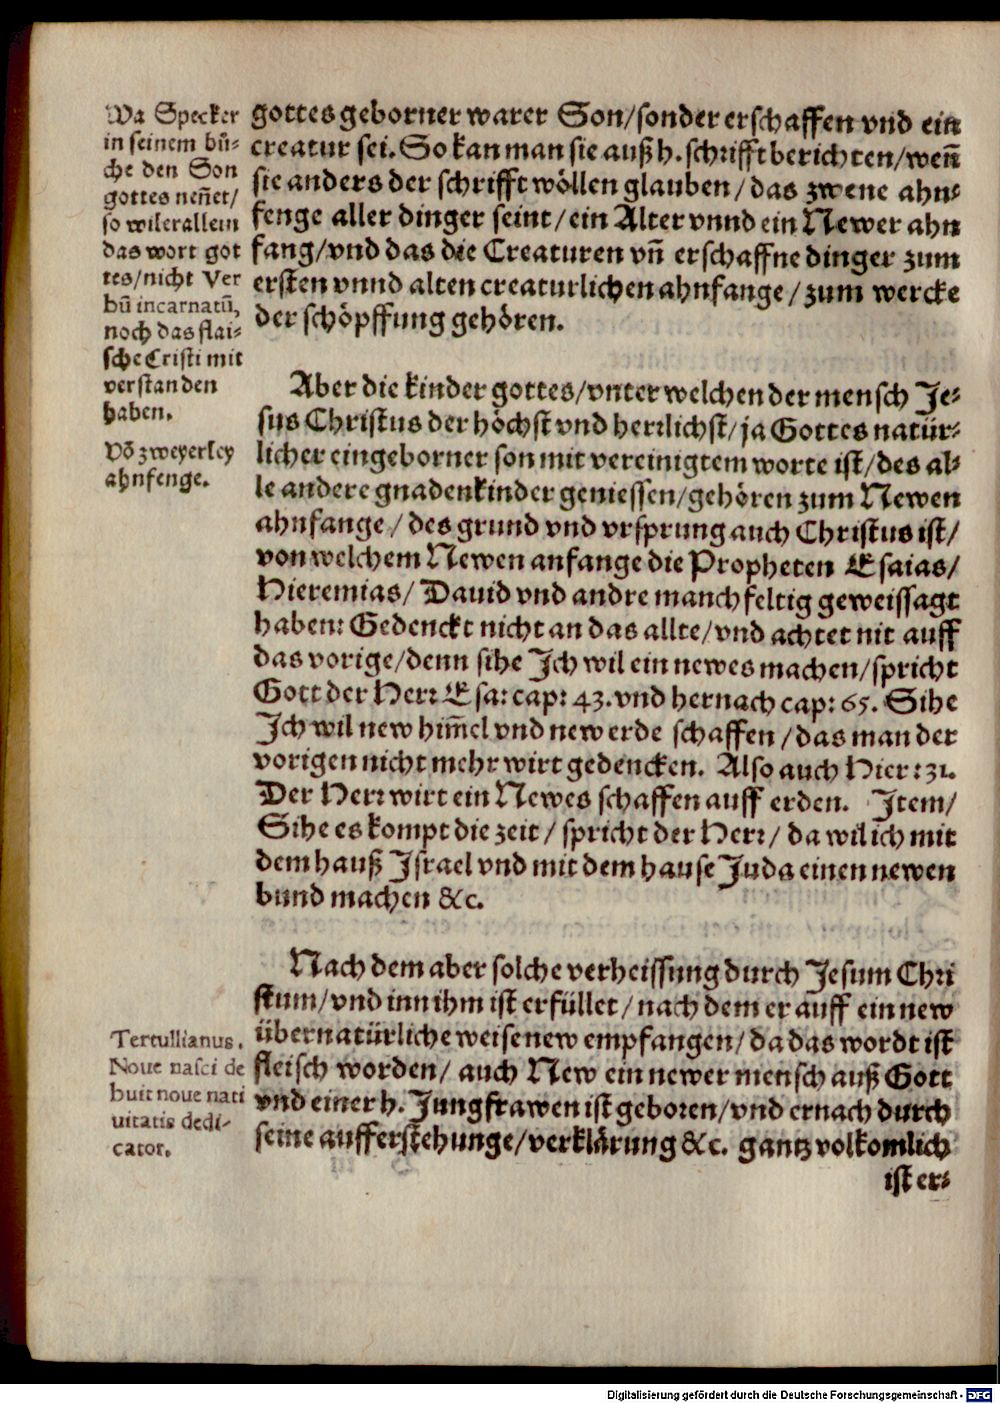 Wa Specker
in seinem bů-
che den Son
gottes neñet/
so wil er allein
das wort got
tes/nicht Ver
bū incarnatū,
noch das flai-
sche Cristi mit
verstanden
haben.
Võ zweyerley
ahnfenge.
gottes geborner warer Son/sonder erschaffen vnd ein
creatur sei. So kan man sie auß h. schrifft berichten/weñ
sie anders der schrifft wöllen glauben/das zwene ahn-
fenge aller dinger seint/ein Alter vnnd ein Newer ahn
fang/vnd das die Creaturen vñ erschaffne dinger zum
ersten vnnd alten creaturlichen ahnfange/zum wercke
der schöpffung gehören.
Aber die kinder gottes/vnter welchen der mensch Je-
sus Christus der höchst vnd herrlichst/ja Gottes natür-
licher eingeborner son mit vereinigtem worte ist/des al-
le andere gnadenkinder geniessen/gehören zum Newen
ahnfange/des grund vnd vrsprung auch Christus ist/
von welchem Newen anfange die Propheten Esaias/
Hieremias/Dauid vnd andre manchfeltig geweissagt
haben: Gedenckt nicht an das allte/vnd achtet nit auff
das vorige/denn sihe Ich wil ein newes machen/spricht
Gott der Herr Esa: cap: 43. vnd hernach cap: 65. Sihe
Ich wil new him̄el vnd new erde schaffen/das man der
vorigen nicht mehr wirt gedencken. Also auch Hier: 31.
Der Herr wirt ein Newes schaffen auff erden. Item/
Sihe es kompt die zeit/spricht der Herr/da wil ich mit
dem hauß Israel vnd mit dem hause Juda einen newen
bund machen &c.
Tertullianus.
Noue nasci de
buit noue nati
uitatis dedi-
cator.
Nach dem aber solche verheissung durch Jesum Chri
stum/vnd inn ihm ist erfüllet/nach dem er auff ein new
übernatürliche weise new empfangen/da das wordt ist
fleisch worden/auch New ein newer mensch auß Gott
vnd einer h. Jungfrawen ist geboren/vnd ernach durch
seine aufferstehunge/verklärung &c. gantz volkomlich
ist er-
Digitalisierung gefördert durch die Deutsche Forschungsgemeinschaft - DFG